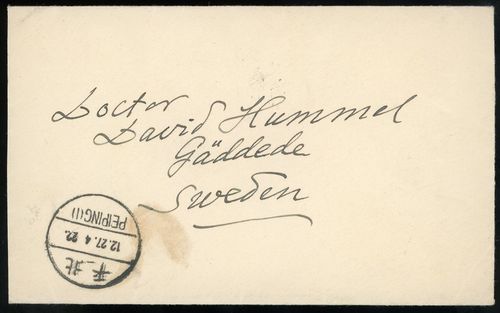 Doctor
David Hummel
Gäddede
Sweden
PEIPING(1)
12.27.4.22.
北平